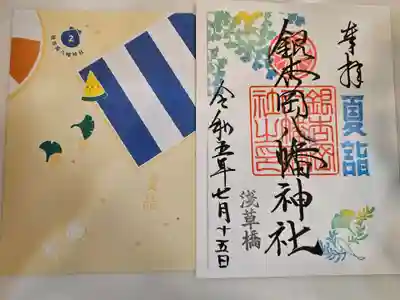 2
銀杏岡八幡神社
夏詣
奉拝
夏詣
銀杏岡八幡神社
淺草橋
令和五年七月十五日